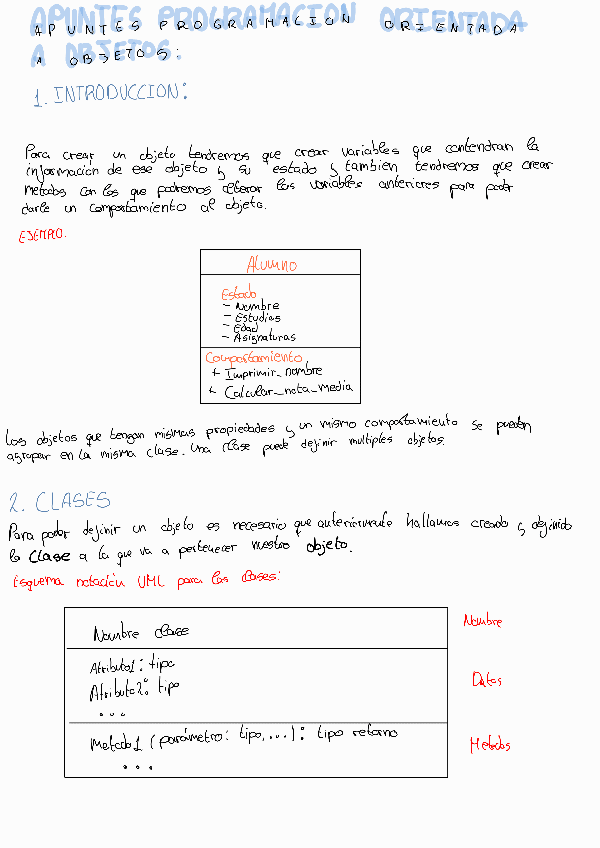 APUNTES PROGRAMACION ORIENTADA
A OBJETOS:
1. INTRODUCCION:
Para crear un objeto tendremos que crear variables que contendran la
informacion de ese objeto y su estado y tambien tendremos que crear
metodos con los que podremos alterar las variables anteriores para poder
darle un comportamiento al objeto.
EJEMPLO.
Alumno
Estado
- Nombre
- Estudios
- Edad
- Asignaturas
Comportamiento
+ Imprimir_nombre
+ Calcular_nota_media
Los objetos que tengan mismas propiedades y un mismo comportamiento se pueden
agrupar en la misma clase. Una clase puede definir multiples objetos.
2. CLASES
Para poder definir un objeto es necesario que anteriormente hallamos creado y definido
la clase a la que va a pertenecer nuestro objeto.
Esquema notación UML para las clases:
Nombre clase
Nombre
Atributo1: tipo
Atributo2: tipo
...
Datos
Metodo1 (parámetro: tipo,...): tipo retorno
...
Metodos